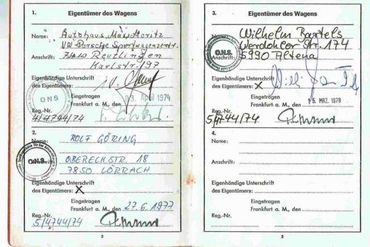 1. Eigentümer des Wagens
Name: Autohaus Max Moritz
VW Porsche Sportwagenzentr.
7410 Reutlingen
Karlstr. 197
Eigenhändige Unterschrift
des Eigentümers:
O.N.S
Eingetragen
Frankfurt a. M., den 1974
Reg.-Nr.
5/4744/74
2.
Name: ROLF GÖRING
OBERECKSTR. 18
7850 LÖRRACH
O.N.S.
Eigenhändige Unterschrift
des Eigentümers: X
Eingetragen
Frankfurt a. M., den 27.6.1977
Reg.-Nr.
5/4744/74
2
3. Eigentümer des Wagens
Name: Wilhelm Bartels
Werdohler Str. 174
5990 Altena
O.N.S.
Eigenhändige Unterschrift
des Eigentümers: X
Eingetragen
Frankfurt a. M., den 15. MRZ. 1978
Reg.-Nr.
5/4744/74
4.
Name:
Eigenhändige Unterschrift
des Eigentümers:
Eingetragen
Frankfurt a. M., den
Reg.-Nr.
3